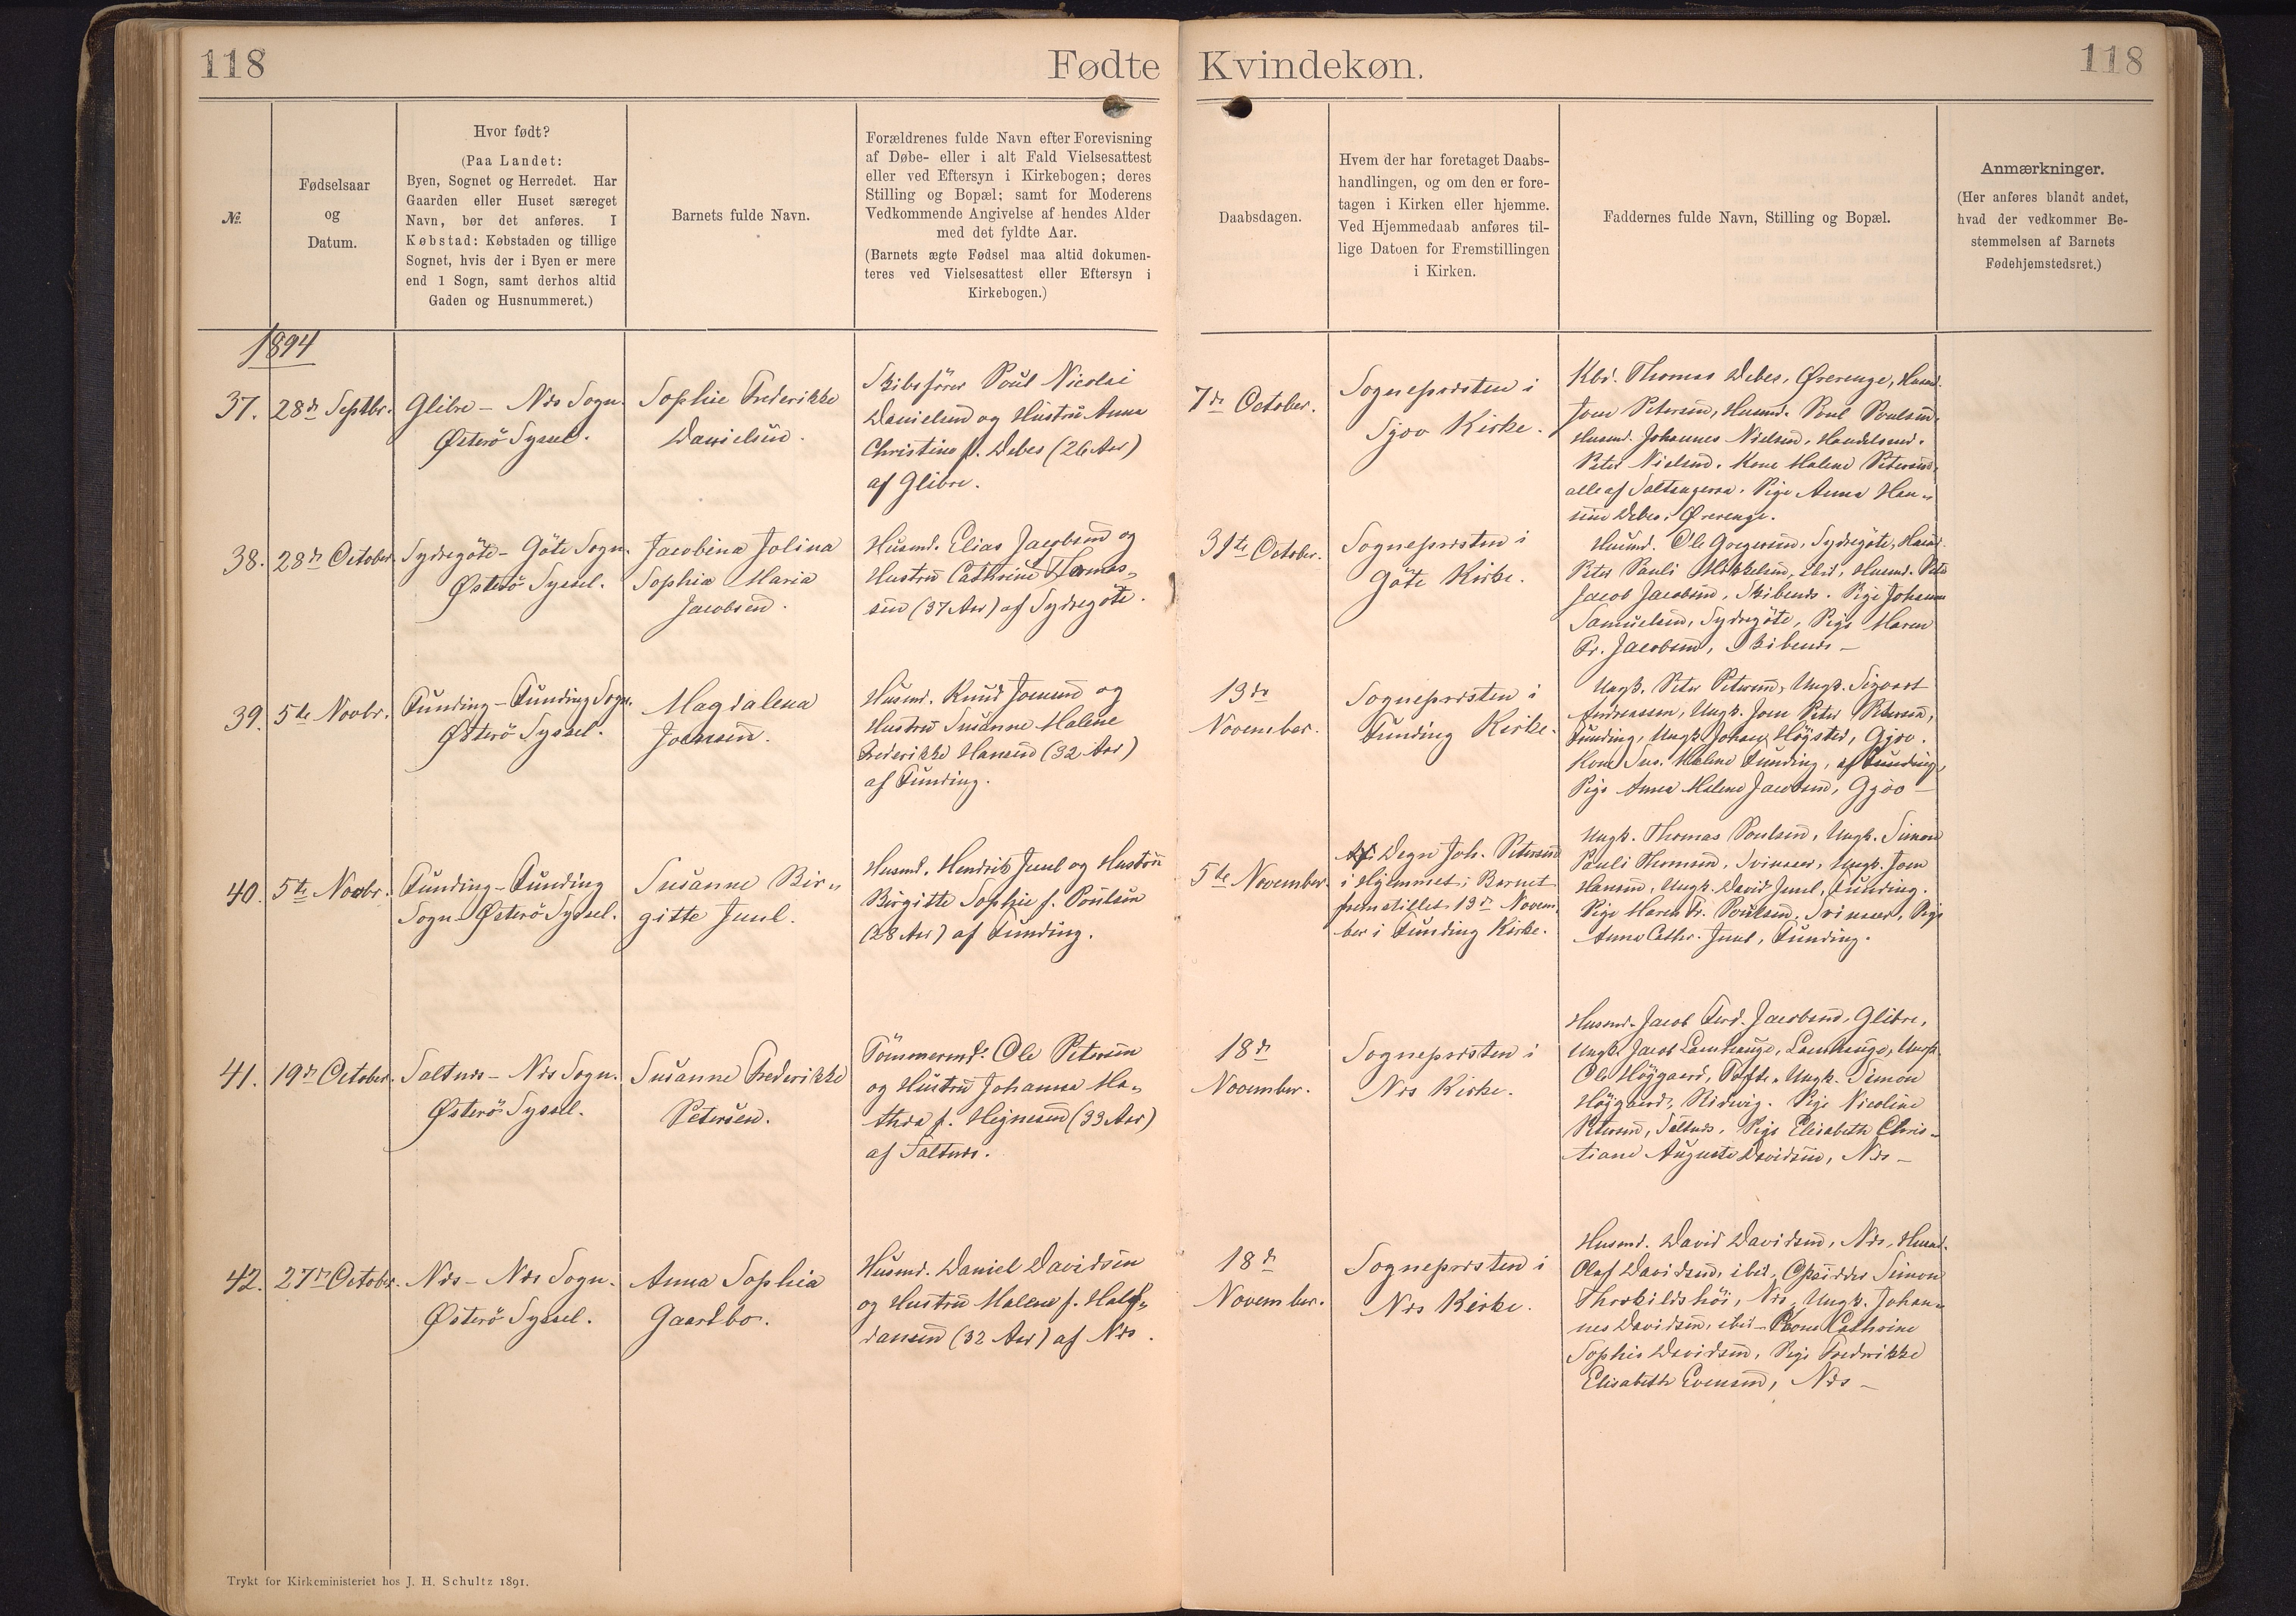 118
Fødte
Kvindekøn.
118
№.
Fødselsaar
og
Datum.
Hvor født?
(Paa Landet:
Byen, Sognet og Herredet. Har
Gaarden eller Huset særeget
Navn, bør det anføres. I
Købstad: Købstaden og tillige
Sognet, hvis der i Byen er mere
end 1 Sogn, samt derhos altid
Gaden og Husnummeret.)
Barnets fulde Navn.
Forældrenes fulde Navn efter Forevisning
af Døbe- eller i alt Fald Vielsesattest
eller ved Eftersyn i Kirkebogen; deres
Stilling og Bopæl; samt for Moderens
Vedkommende Angivelse af hendes Alder
med det fyldte Aar.
(Barnets ægte Fødsel maa altid dokumen-
teres ved Vielsesattest eller Eftersyn i
Kirkebogen.)
Daabsdagen.
Hvem der har foretaget Daabs-
handlingen, og om den er fore-
tagen i Kirken eller hjemme.
Ved Hjemmedaab anføres til-
lige Datoen for Fremstillingen
i Kirken.
Faddernes fulde Navn, Stilling og Bopæl.
Anmærkninger.
(Her anføres blandt andet,
hvad der vedkommer Be-
stemmelsen af Barnets
Fødehjemstedsret.)
1894
37.
28de Septbr.
Glibre - Nes Sogn.
Østerö Syssel.
Sophie Frederikke
Danielsen.
Skibsfører Poul Nicolai
Danielsen og Hustru Anna
Christine f. Debes (26 Aar)
af Glibre.
7de October.
Sognepresten i
Sjov Kirke.
Kbd. Thomas Debes, Ørerenge, Husmd.
Joen Petersen, Husmd. Poul Poulsen,
Husmd. Johannes Nielsen, Handelsmd.
Peter Nielsen. Kone Malene Petersen,
alle af Saltangeraa. Pige Anna Han-
sine Debes, Ørerenge.
38.
28de October
Sydregöte - Göte Sogn.
Østerö Syssel.
Jacobina Jolina
Sophia Maria
Jacobsen.
Husmd. Elias Jacobsen og
Hustru Cathrine Thomas-
sen (37 Aar) af Sydregöte.
31te October.
Sognepresten i
Göte Kirke.
Husmd. Ole Gregersen, Sydregöte, Husmd.
Peter Pauli Mikkelsen, ibid, Husmd.
Jacob Jacobsen, Skibenes. Pige Johanne
Samuelsen, Sydregöte, Pige Maren
Fr. Jacobsen, Skibenes -
39.
5te Novbr.
Funding - Funding Sogn.
Østerö Syssel.
Magdalena
Joensen.
Husmd. Knud Joensen og
Hustru Susanne Malene
Frederikke Hansen (32 Aar)
af Funding.
13de
November.
Sognepresten i
Funding Kirke.
Ungk. Peter Petersen, Ungk. Sigvart
Andreassen, Ungk. Joen Peter Petersen,
Funding, Ungk. Johan Höysted, Gjov.
Kone Sus. Malene Funding, af Funding,
Pige Anna Malene Jacobsen, Gjov -
40.
5te Novbr.
Funding - Funding
Sogn - Østerö Syssel.
Susanne Bir-
gitte Juul.
Husmd. Hendrik Juul og Hustru
Birgitte Sophie f. Poulsen
(28 Aar) af Funding.
5te November.
Af Degn Joh. Petersen
i Hjemmet; Barnet
fremstillet 13de Novem-
ber i Funding Kirke.
Ungk. Thomas Poulsen, Ungk. Simon
Pauli Thomsen, Svinaer, Ungk. Joen
Hansen, Ungk. David Juul, Funding.
Pige Maren Fr. Poulsen, Svinaer, Pige
Anna Cathr. Juul, Funding.
41.
19de October.
Saltnes - Nes Sogn.
Østerö Syssel.
Susanne Frederikke
Petersen.
Tömmermd. Ole Petersen
og Hustru Johanna Ma-
thea f. Heynesen (33 Aar)
af Saltnes.
18de
November.
Sognepresten i
Nes Kirke.
Husmd. Jacob Ferd. Jacobsen, Glibre,
Ungk. Jacob Lambhauge, Lambhauge, Ungk.
Ole Höygaard, Tofte, Ungk. Simon
Höygaard, Ridevig. Pige Nicoline
Petersen, Saltnes. Pige Elisabeth Chris-
tiane Auguste Davidsen, Nes -
42.
27de October.
Nes - Nes Sogn.
Østerö Syssel.
Anna Sophia
Gaardbo.
Husmd. Daniel Davidsen
og Hustru Malene f. Half-
dansen (32 Aar) af Nes.
18de
November.
Sognepresten i
Nes Kirke.
Husmd. David Davidsen, Nes, Husmd.
Olaf Davidsen, ibid, Opsidder Simon
Throkildshöi, Nes, Ungk. Johan-
nes Davidsen, ibid - Kone Cathrine
Sophie Davidsen, Pige Frederikke
Elisabeth Evensen, Nes -
Trykt for Kirkeministeriet hos J. H. Schultz 1891.